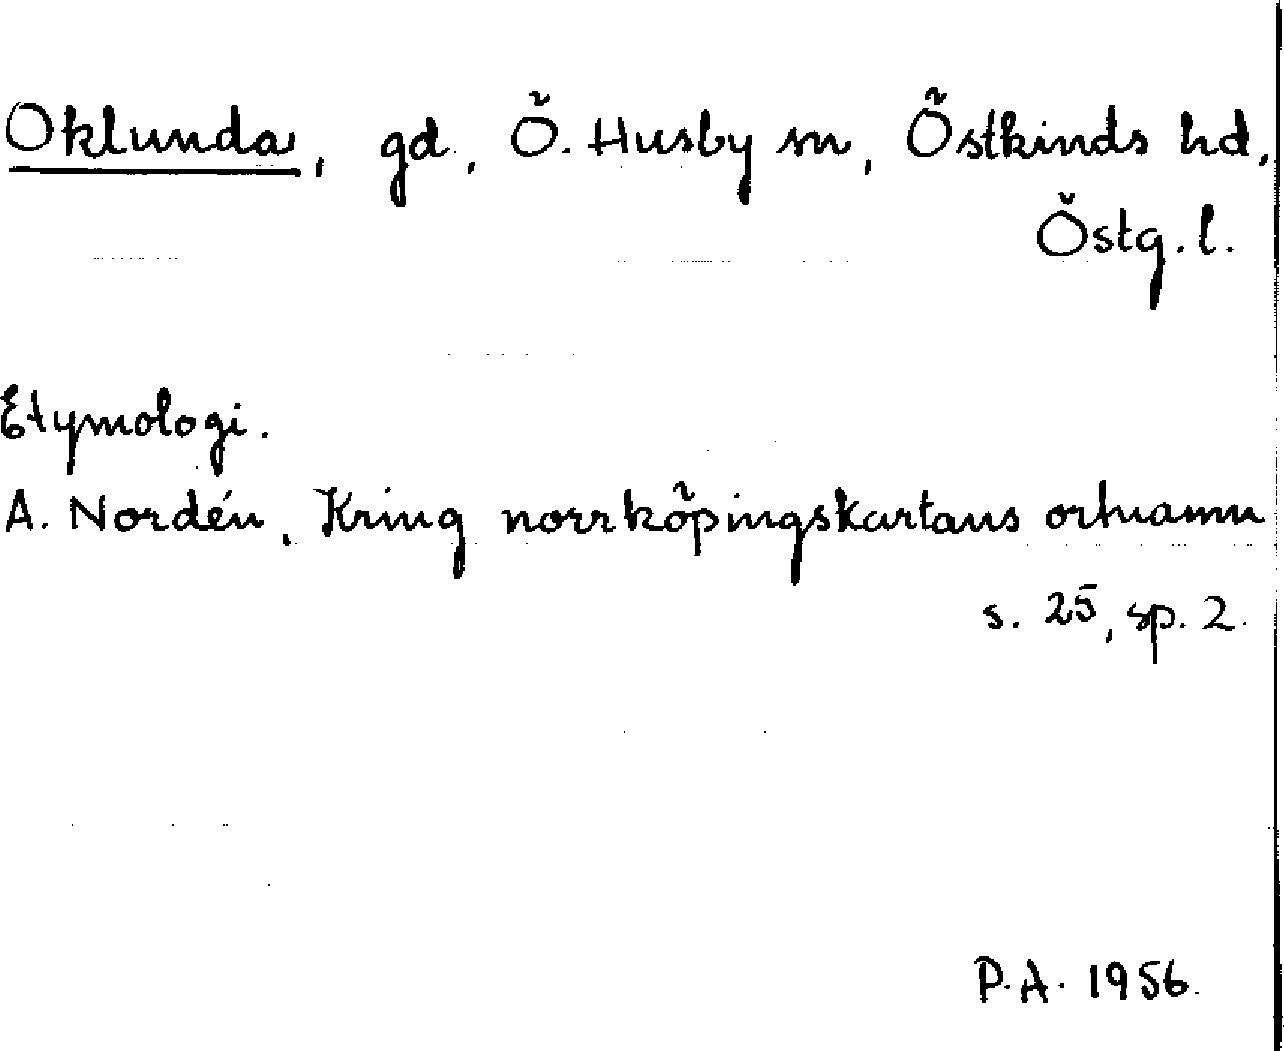 Oklunda, gd, Ö. Husby sn, Östkinds hd,
Östg. l.
Etymologi.
A. Nordén, Kring norrköpingskartans ortnamn
s. 25, sp. 2.
P.A. 1956.